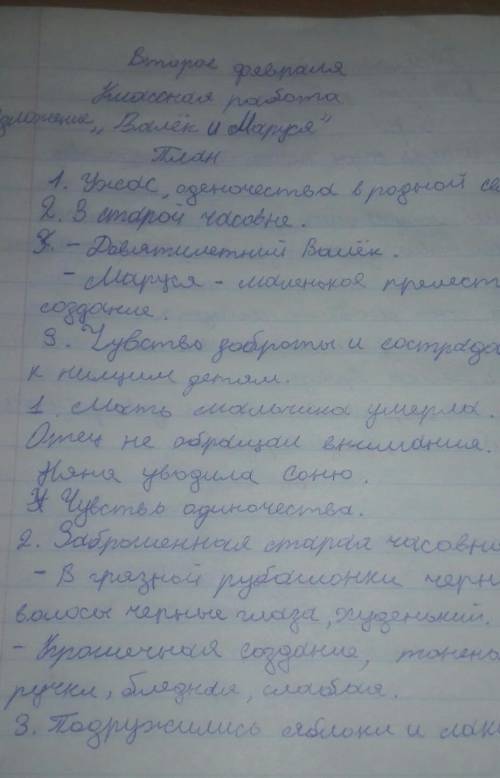 Второе февраля
Классная работа
зложение „Валёк и Маруся"
План
1. Ужас, оденочества в родной се
2. В старой часовне.
- Девятилетний Валёк.
- Маруся - маленькое прелест
создание.
3. Чувство доброты и сострада
к нищим детям.
1. Мать мальчика умерла.
Отец не обращал внимания.
Няня уводила Соню.
Чувство одиночества.
2. Заброшенная старая часовн
- В грязной рубашонки черн
волосы черные глаза, худенький.
- Крошечная создание, тонень
ручки, бледная, слабая.
3. Подружились яблоки и лак